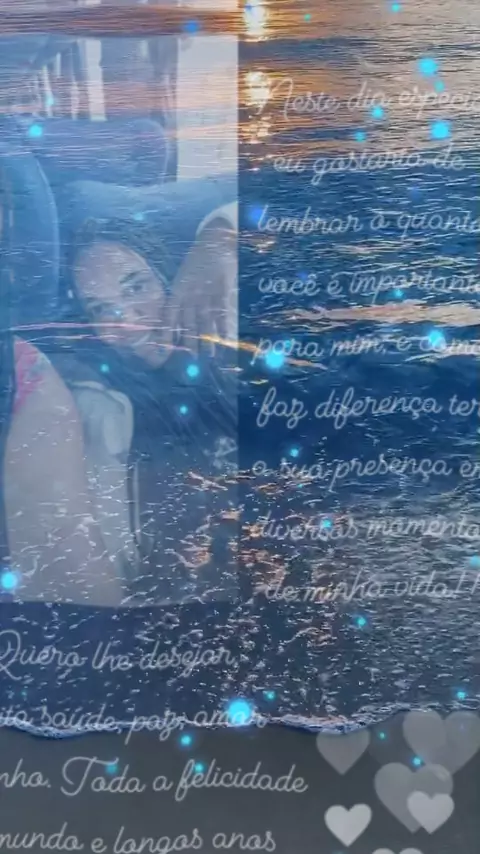 Neste dia especia
eu gostaria de
lembrar o quanto
você é importante
para mim, e como
faz diferença ter
a sua presença em
diversos momento
de minha vida!!
Quero lhe desejar,
ito saúde, paz, amor
nho. Toda a felicidade
mundo e longos anos